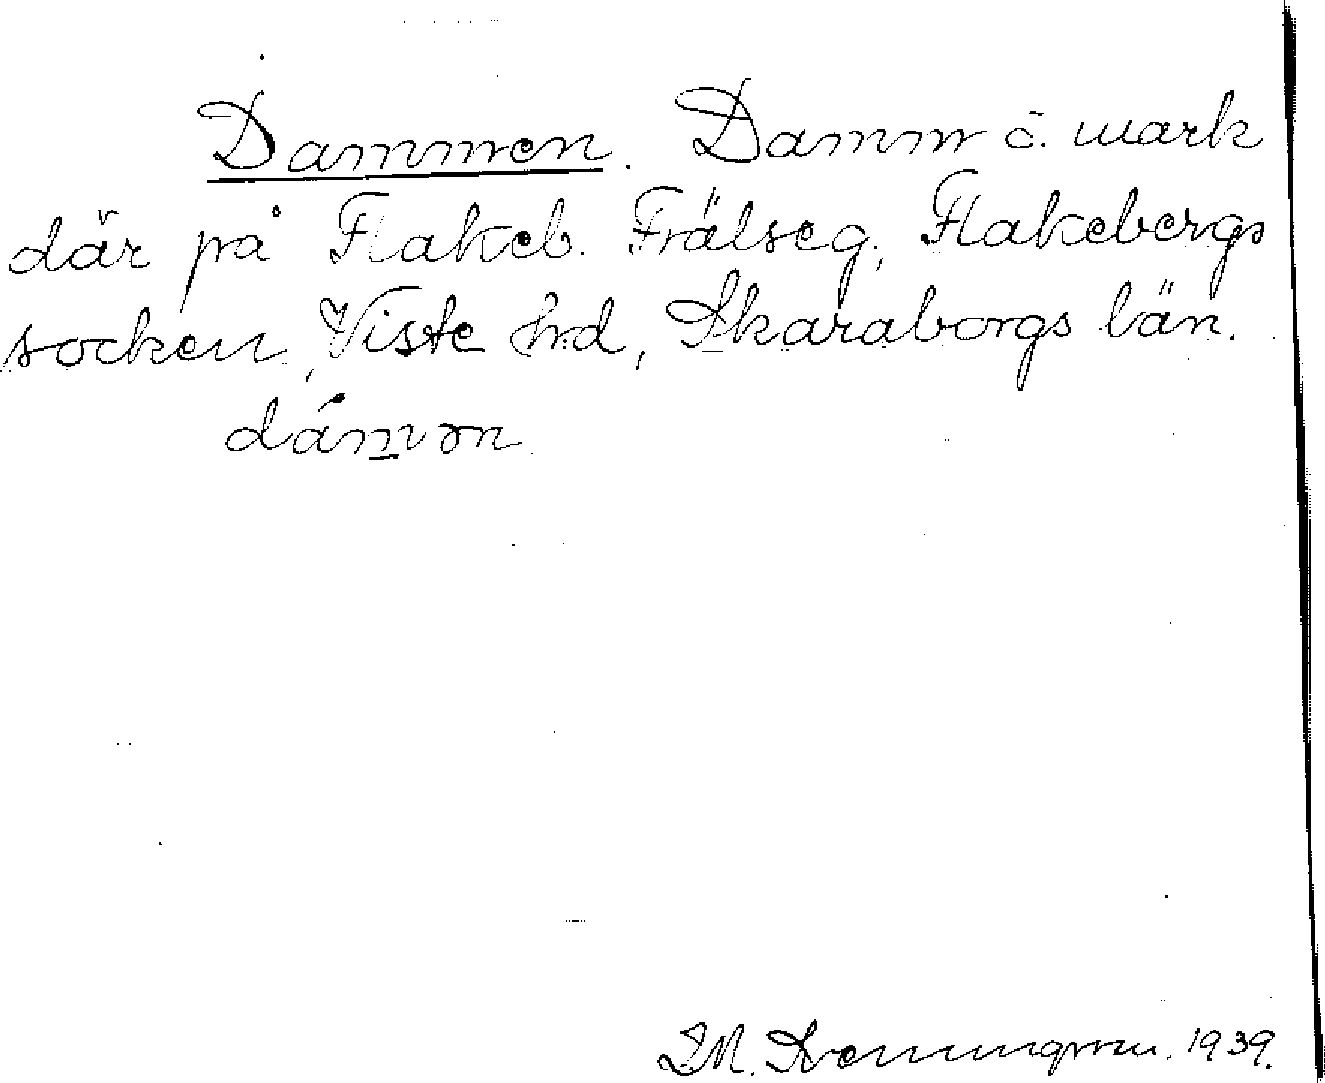 Dammen. Damm o. mark
där på Flakeb. Frälseg., Flakebergs
socken, Viste hd, Skaraborgs län.
dámən
1939.